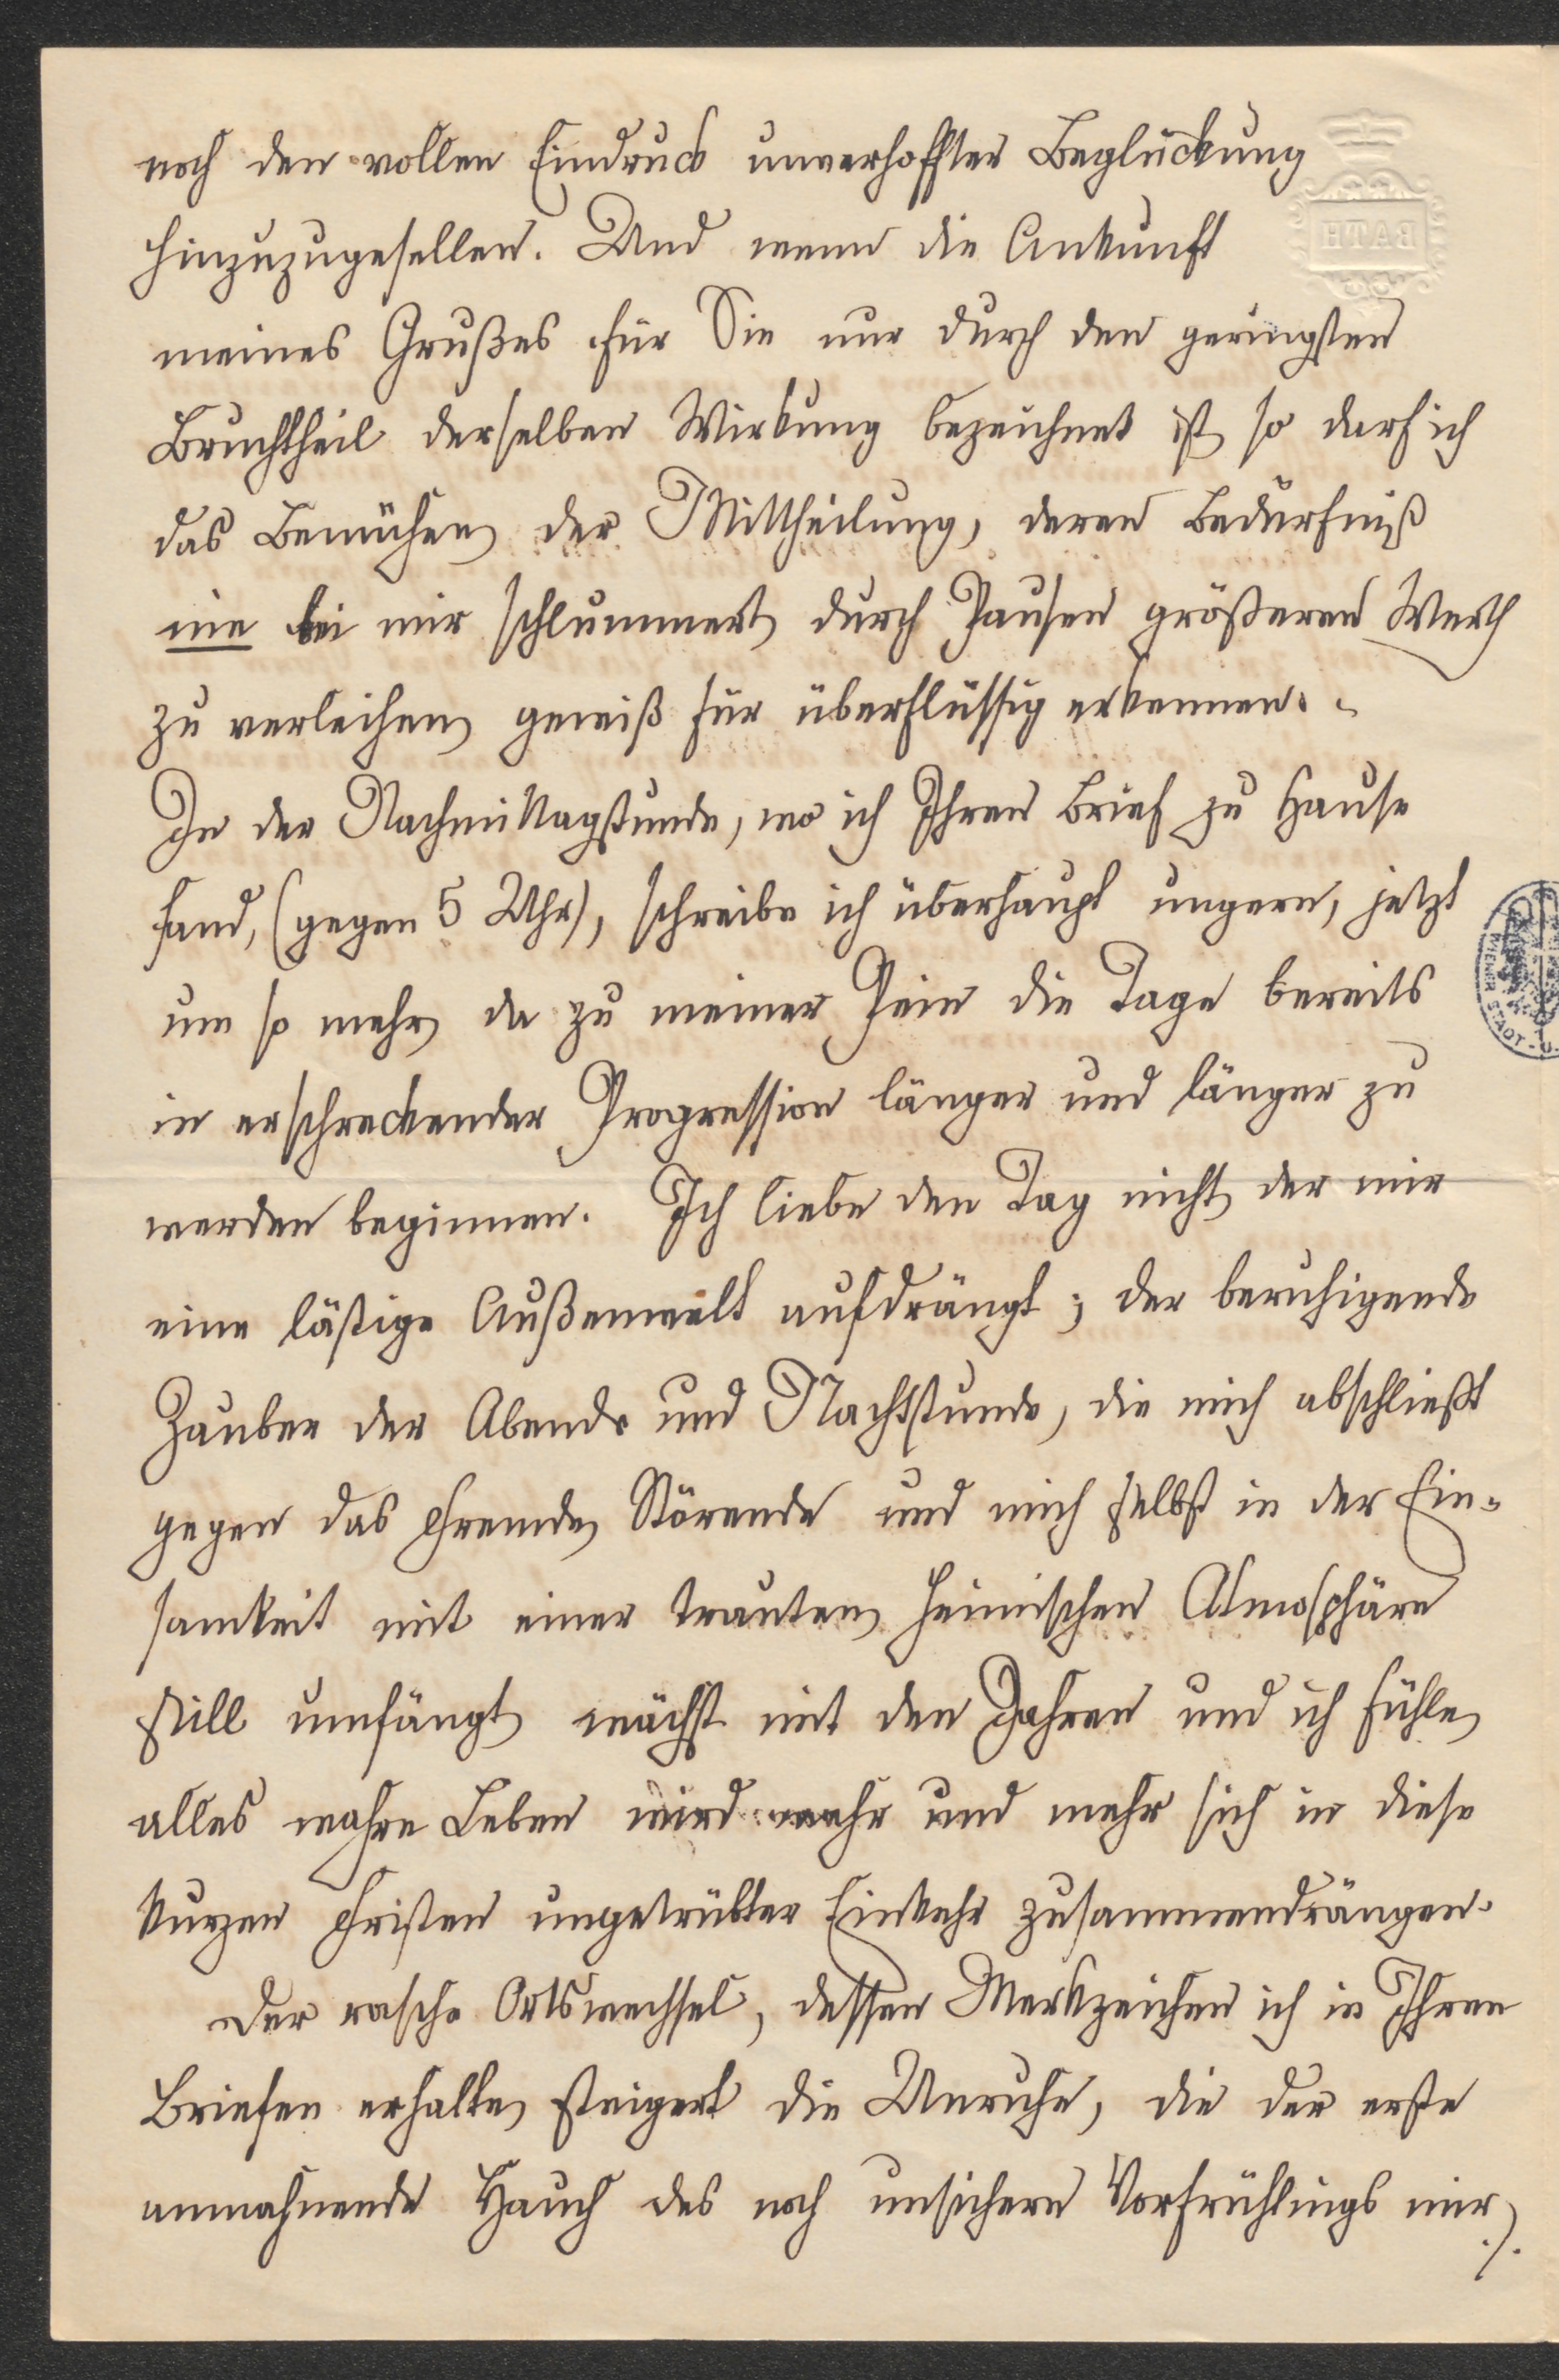 noch den vollen Eindruck unverhoffter Beglückung
hinzuzugesellen. Und wenn die Ankunft
meines Grußes für Sie nur durch den geringsten
Bruchtheil derselben Wirkung bezeichnet ist, so darf ich
das Bemühen, der Mittheilung, deren Bedürfniß
nie bei mir schlummert, durch Pausen größeren Werth
zu verleihen, gewiß für überflüssig erkennen. -
In der Nachmittagstunde, wo ich Ihren Brief zu Hause
fand, (gegen 5 Uhr), schreibe ich überhaupt ungern, jetzt
um so mehr, da zu meiner Pein die Tage bereits
in erschreckender Progression länger und länger zu
werden beginnen. Ich liebe den Tag nicht, der mir
eine lästige Außenwelt aufdrängt; der beruhigende
Zauber der Abend- und Nachtstunde, die mich abschließt
gegen das fremde, Störende und mich selbst in der Ein-
samkeit mit einer trauten, heimischen Atmosphäre
still umfängt, wächst mit den Jahren und ich fühle,
alles wahre Leben wird mehr und mehr sich in diese
kurzen Fristen ungetrübter Einkehr zusammendrängen.
Der rasche Ortswechsel, dessen Merkzeichen ich in Ihren
Briefen erhalte, steigert die Unruhe, die der erste
anmahnende Hauch des noch unsichern Vorfrühlings mir
./.
BATH